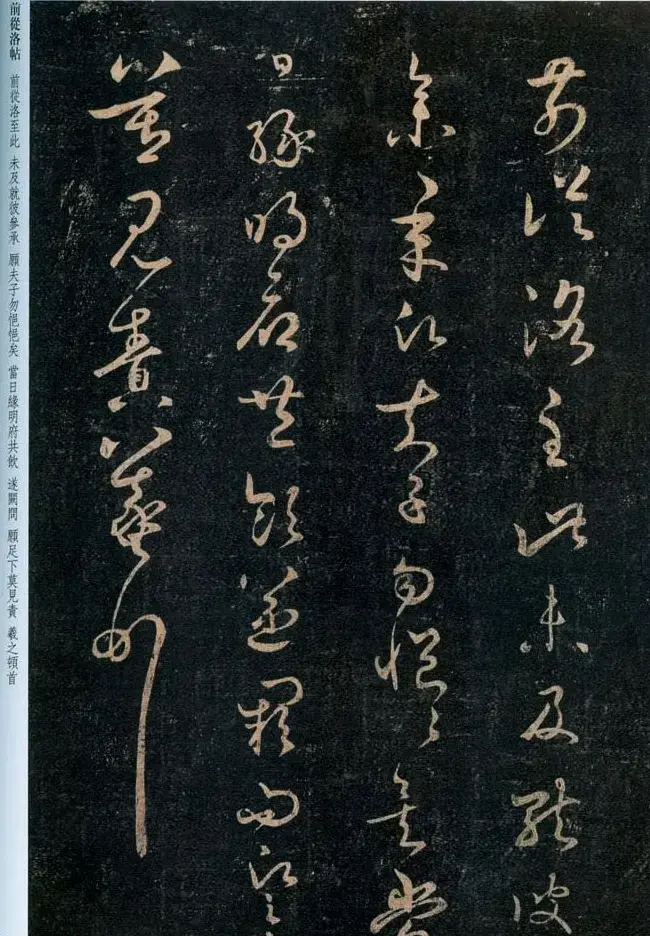 前從洛至此未及就彼
參承願夫子勿悒悒矣當
日緣明府共飲遂闕問願足
莫見責羲之頓首
前從洛帖 前從洛至此 未及就彼參承 願夫子勿悒悒矣 當日緣明府共飲 遂闕問 願足下莫見責 羲之頓首